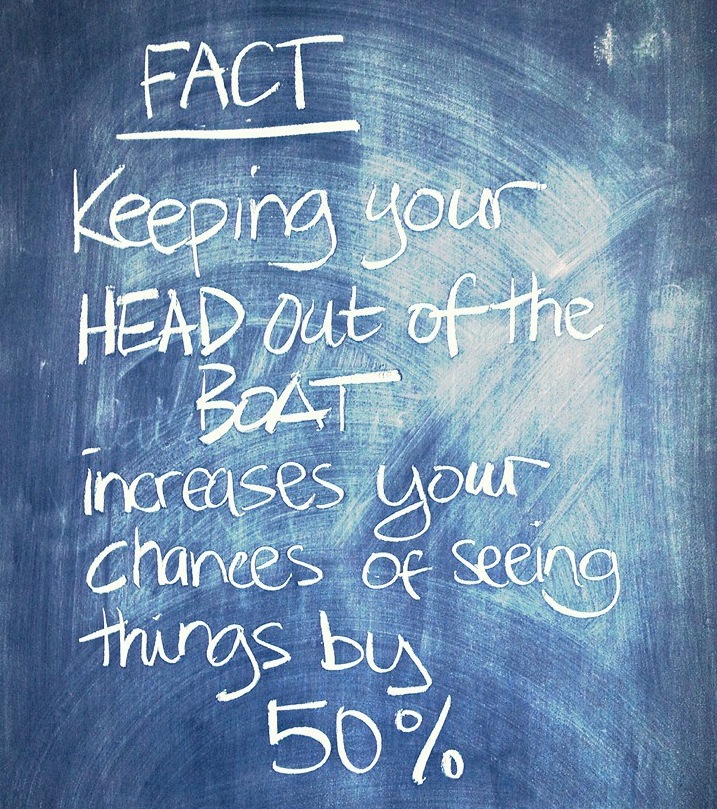 FACT
Keeping your
HEAD out of the
BOAT
increases your
chances of seeing
things by
50%